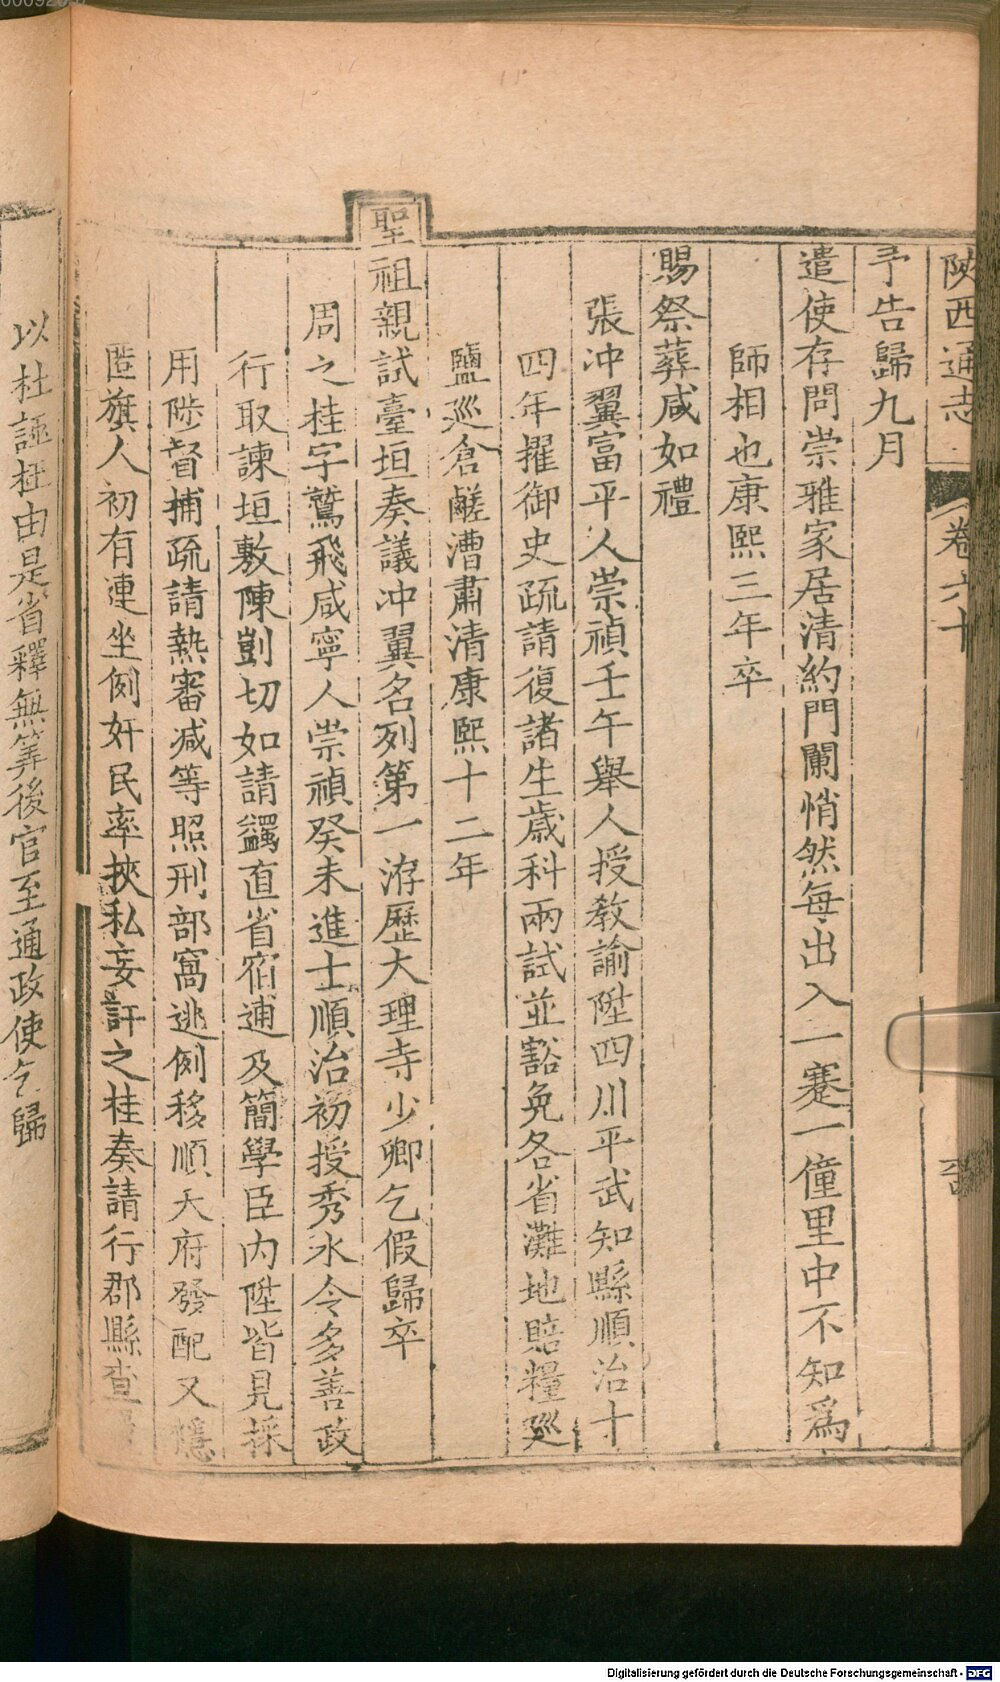 陝西通志 卷六十
予告歸九月
遣使存問崇雅家居清約門闌悄然每出入一蹇一僮里中不知爲
師相也康熙三年卒
賜祭葬咸如禮
張沖翼富平人崇禎壬午舉人授敎諭陞四川平武知縣順治十
四年擢御史疏請復諸生歲科兩試並豁免各省灘地賠糧廵
鹽廵倉鹺漕肅清康熙十二年
聖祖親試臺垣奏議沖翼名列第一洊歷大理寺少卿乞假歸卒
周之桂字鷲飛咸寧人崇禎癸未進士順治初授秀水令多善政
行取諫垣敷陳剴切如請蠲直省宿逋及簡學臣内陞皆見採
用陟督捕疏請熱審减等照刑部窩逃例移順天府發配又隱
匿旗人初有連坐例奸民率挾私妄訐之桂奏請行郡縣查
以杜誣枉由是省釋無筭後官至通政使乞歸
00092
Digitalisierung gefördert durch die Deutsche Forschungsgemeinschaft - DFG